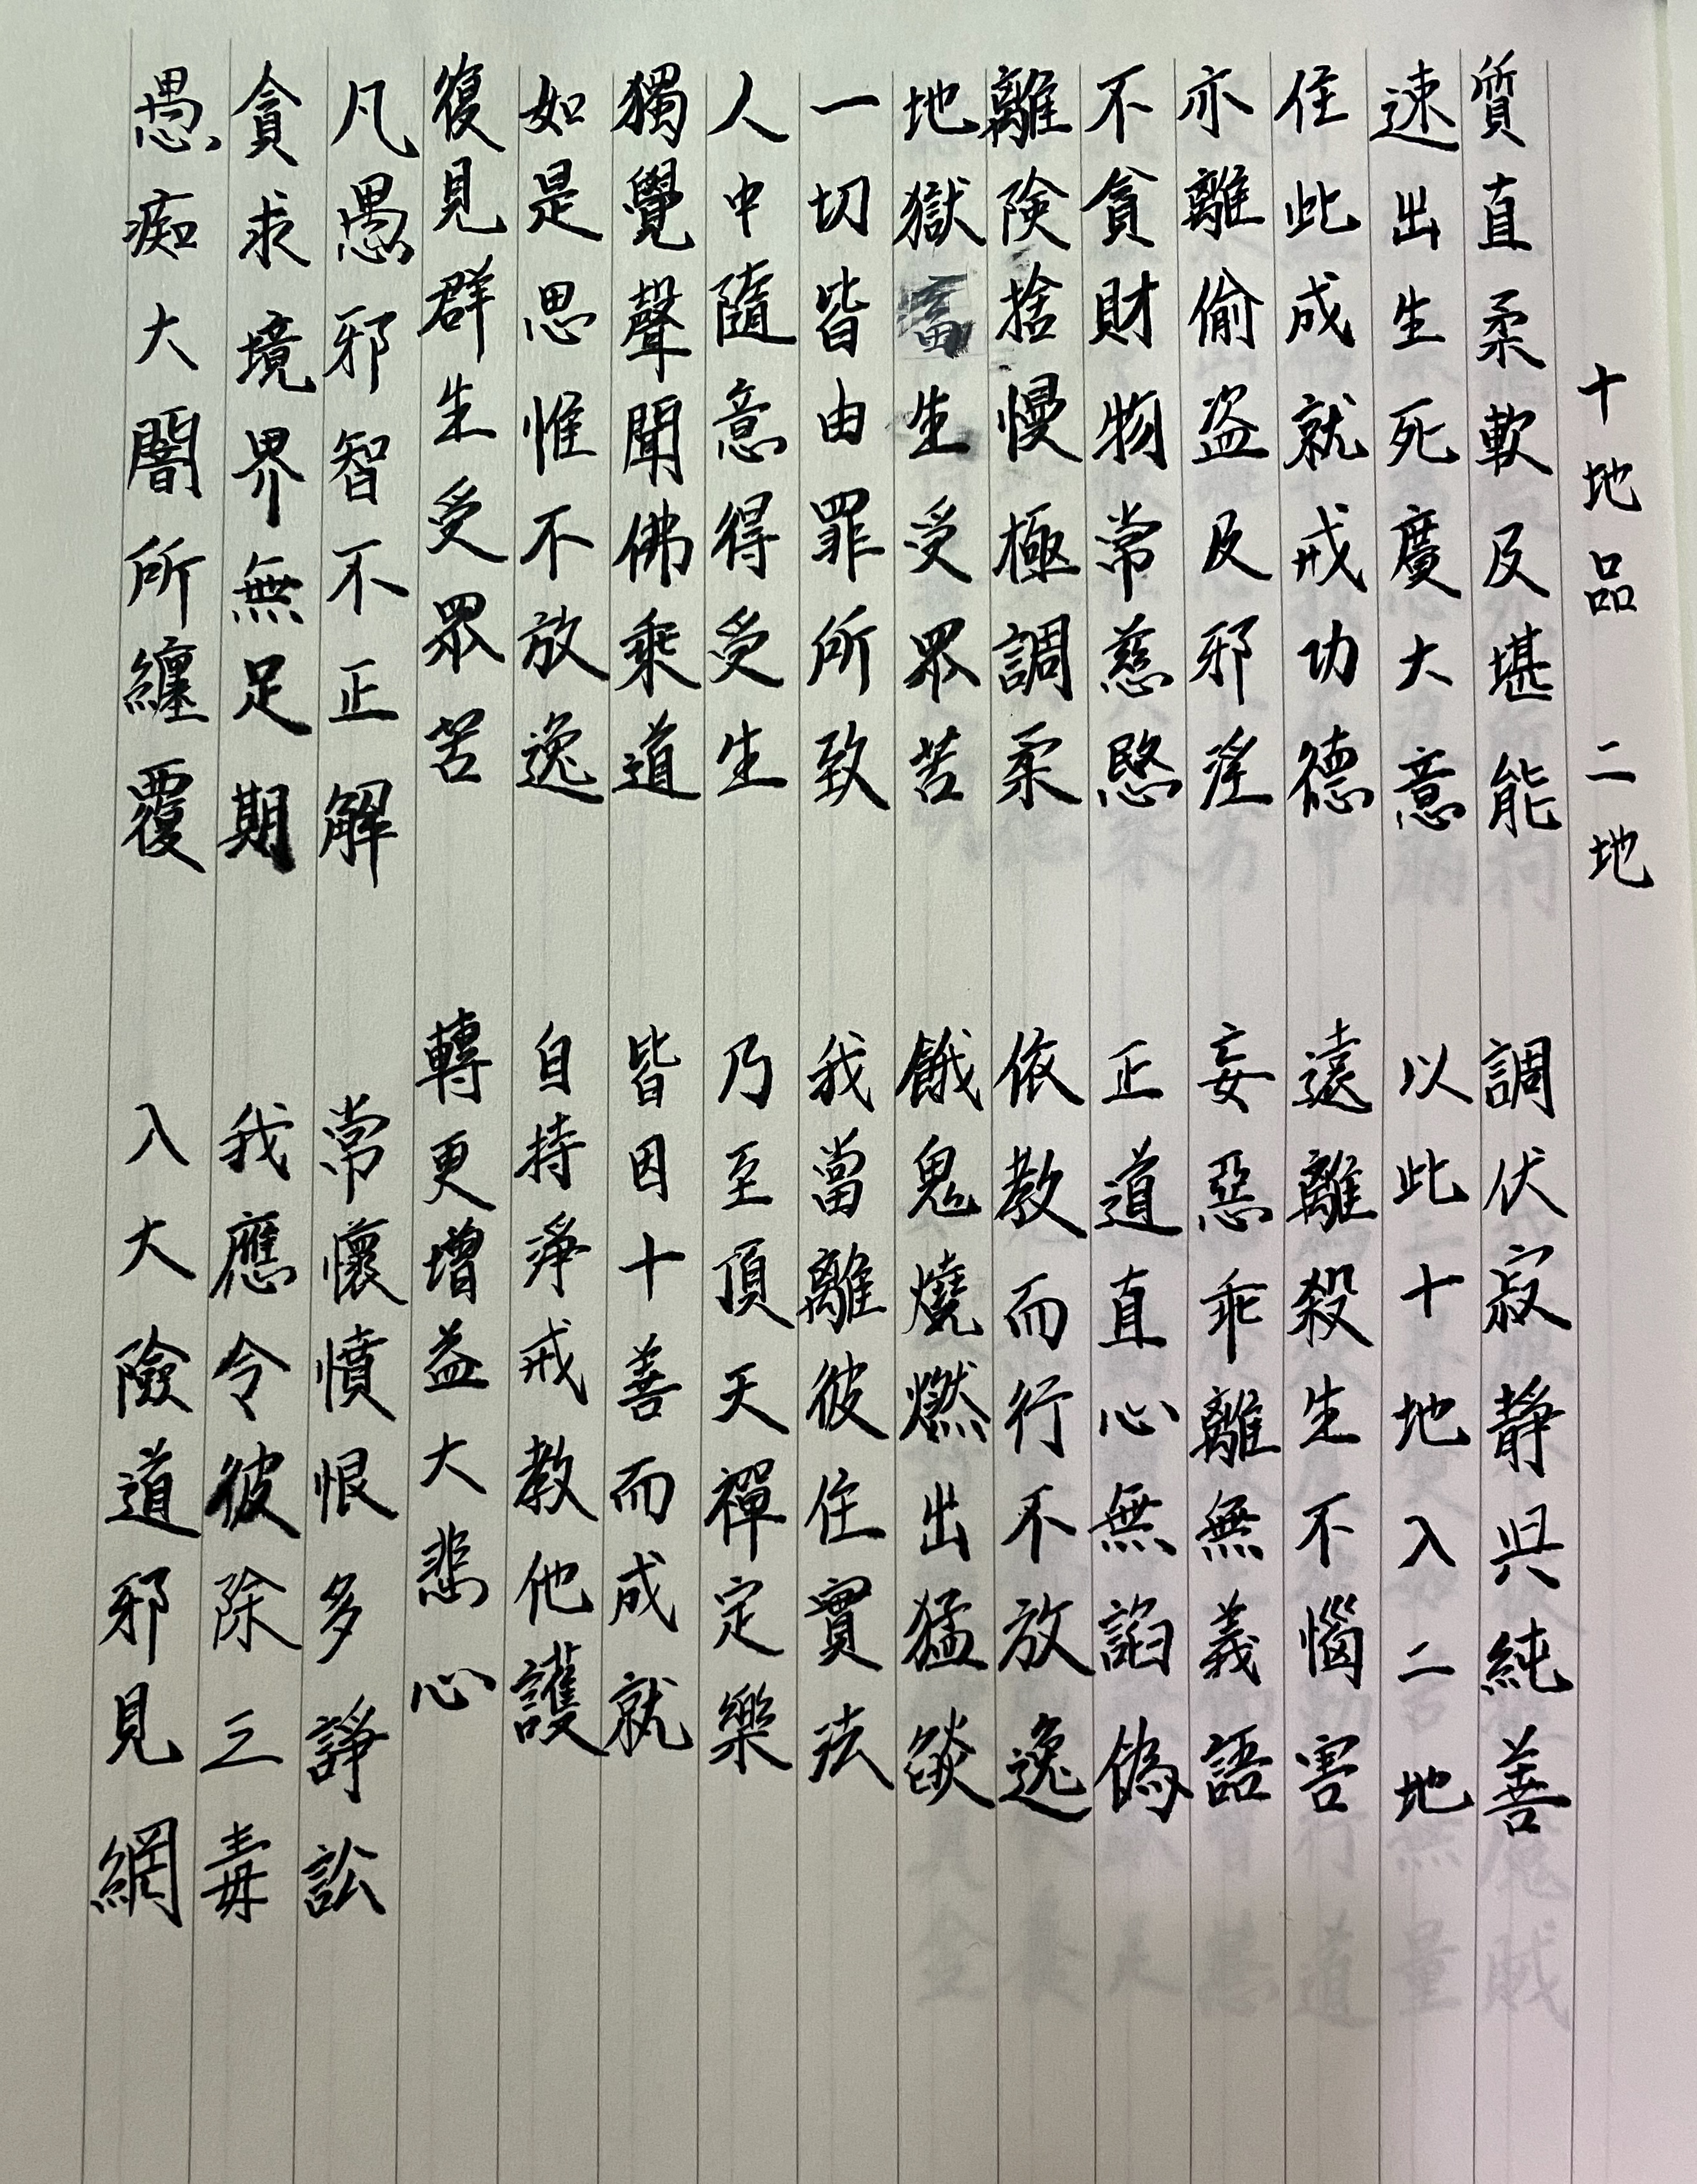 十地品 二地
質直柔軟及堪能 調伏寂静與純善
速出生死廣大意 以此十地入二地
住此成就戒功德 遠離殺生不惱害
亦離偷盗及邪淫 妄惡乖離無義語
不貪財物常慈愍 正道直心無諂偽
離険捨慢極調柔 依教而行不放逸
地獄畜生受眾苦 餓鬼燒燃出猛燄
一切皆由罪所致 我當離彼住實法
人中隨意得受生 乃至頂天禪定樂
獨覺聲聞佛乘道 皆因十善而成就
如是思惟不放逸 自持淨戒教他護
復見群生受眾苦 轉更增益大悲心
凡愚邪智不正解 常懷憤恨多諍訟
貪求境界無足期 我應令彼除三毒
愚痴大闇所纏覆 入大險道邪見網